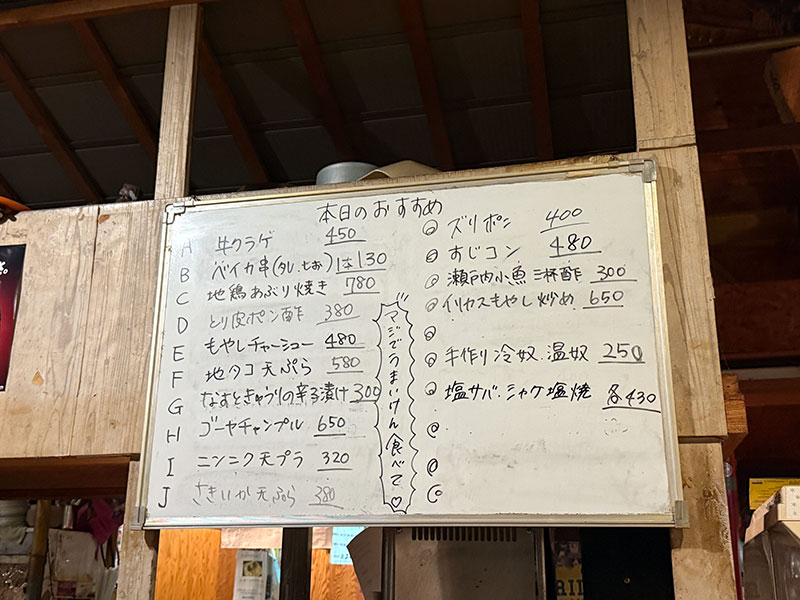 本日のおすすめ
A 牛クラゲ 450
B ベイカ串(タレ.七お) 1本130
C 地鶏あぶり焼き 780
D とり皮ポン酢 380
E もやしチャーシュー 480
F 地タコ天ぷら 580
G なすときゅうりの辛子漬け 300
H ゴーヤチャンプル 650
I ニンニク天プラ 320
J さきいか天ぷら 380
マジでうまいけん食べて♡
◎ ズリポン 400
◎ すじコン 480
◎ 瀬戸内小魚三杯酢 300
◎ イリカスもやし炒め 650
◎
◎ 手作り冷奴.温奴 250
◎ 塩サバ.シャケ塩焼 各430